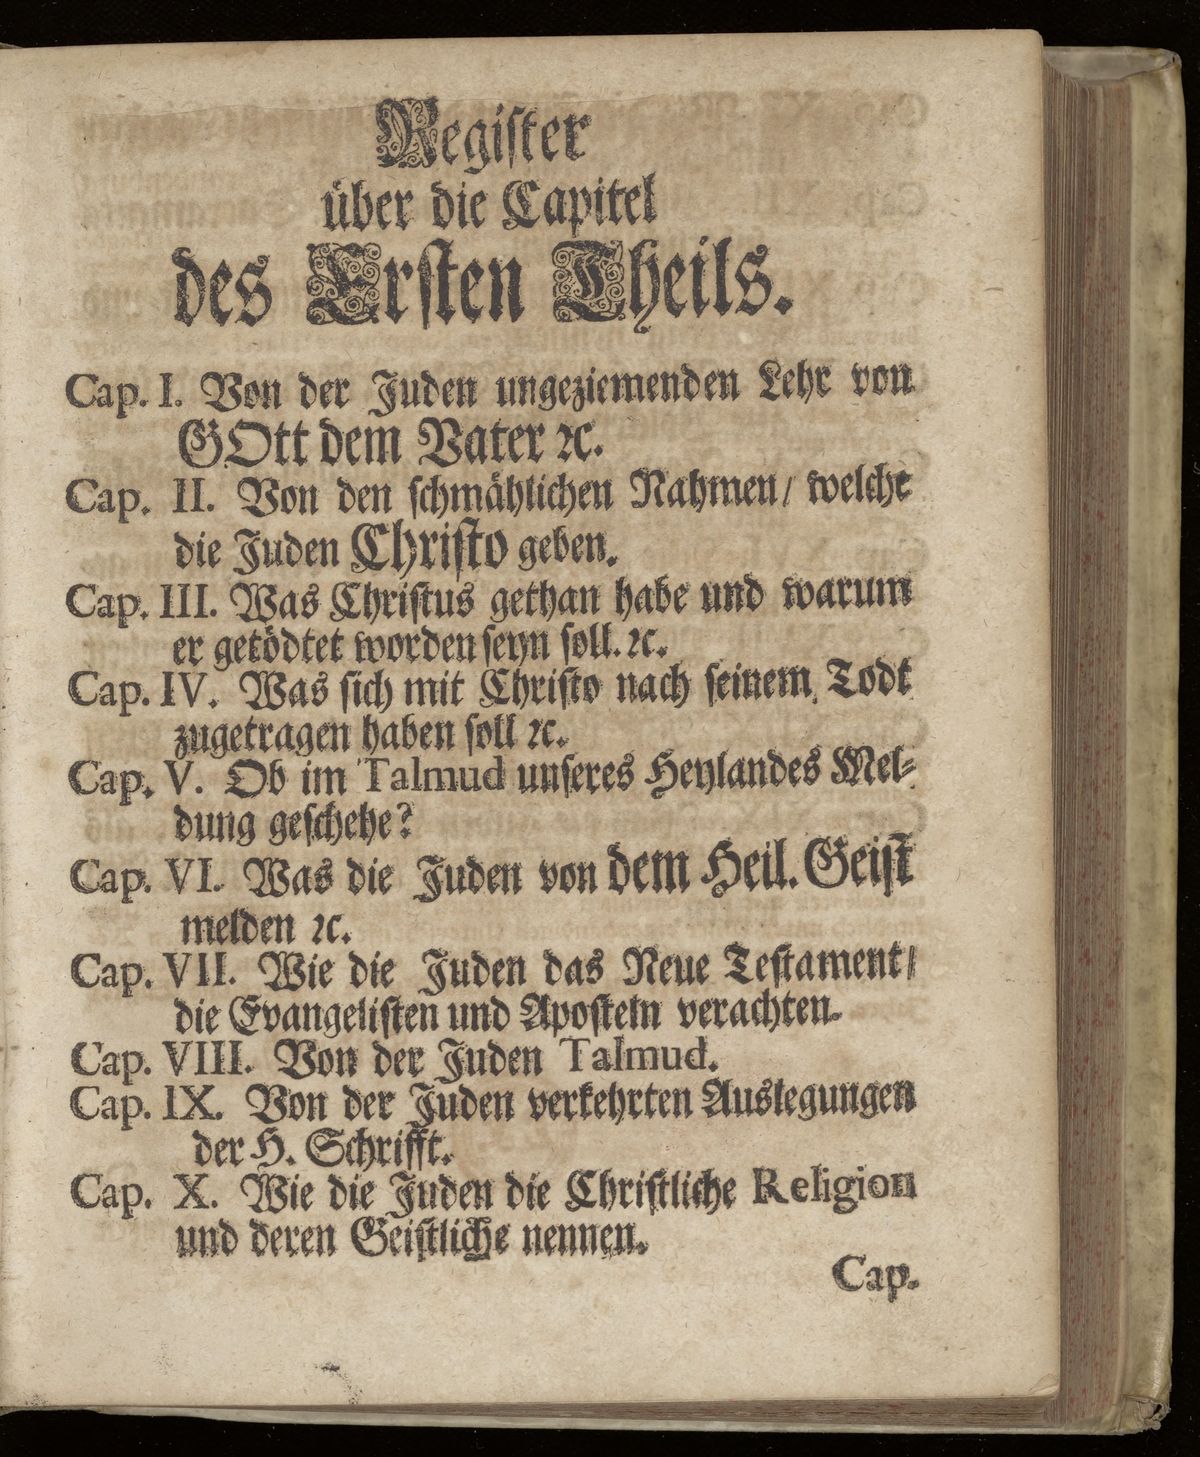 Register
über die Capitel
des Ersten Theils.
Cap. I. Von der Juden ungeziemenden Lehr von
GOtt dem Vater ꝛc.
Cap. II. Von den schmählichen Nahmen/ welche
die Juden Christo geben.
Cap. III. Was Christus gethan habe und warum
er getödtet worden seyn soll. ꝛc.
Cap. IV. Was sich mit Christo nach seinem Todt
zugetragen haben soll ꝛc.
Cap. V. Ob im Talmud unseres Heylandes Mel-
dung geschehe?
Cap. VI. Was die Juden von dem Heil. Geist
melden ꝛc.
Cap. VII. Wie die Juden das Neue Testament/
die Evangelisten und Aposteln verachten.
Cap. VIII. Von der Juden Talmud.
Cap. IX. Von der Juden verkehrten Auslegungen
der H. Schrifft.
Cap. X. Wie die Juden die Christliche Religion
und deren Geistliche nennen.
Cap.